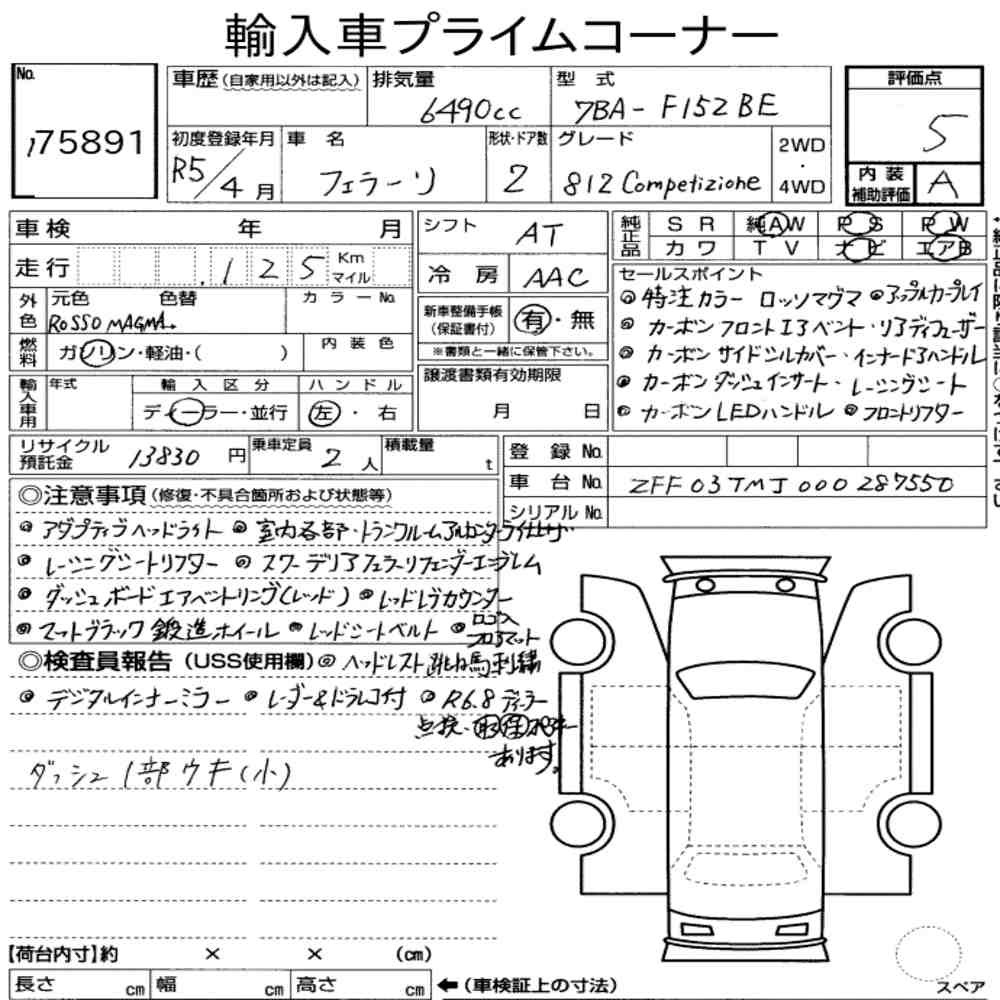 輸入車プライムコーナー
No.
175891
車歴(自家用以外は記入)
排気量
6490cc
型式
7BA-F152BE
評価点
5
初度登録年月
R5/4月
車名
フェラーリ
形状・ドア数
2
グレード
812 Competizione
2WD
・
4WD
内装
補助評価
A
車検 年 月
シフト
AT
純正品
SR 純AW PS PW
カワ TV ナビ エアB
走行 .125 Km マイル
冷房
AAC
セールスポイント
特注カラー ロッソマグマ ◉アップルカープレイ
◉カーボンフロントエアベント・リアディフューザー
◉カーボンサイドシルカバー・インナードアハンドル
◉カーボンダッシュインサート・レーシングシート
◉カーボンLEDハンドル ◉フロントリフター
外色
元色 色替
ROSSO MAGMA.
カラーNo.
新車整備手帳
(保証書付)
有・無
※書類と一緒に保管下さい。
燃料
ガソリン・軽油・( )
内装色
輸入車用
年式
輸入区分
ディーラー・並行
ハンドル
左・右
譲渡書類有効期限
月 日
リサイクル
預託金
13830円
乗車定員
2人
積載量
t
登録No.
車台No.
ZFF03TMJ000287550
シリアルNo.
◎注意事項(修復・不具合箇所および状態等)
◉アダプティブヘッドライト ◉室内各部・トランクルームアルカンターラ仕上げ
◉レーシングシートリフター ◉スクーデリアフェラーリフェンダーエンブレム
◉ダッシュボードエアベントリング(レッド) ◉レッドレブカウンター
◉マットブラック鍛造ホイール ◉レッドシートベルト ◉ロゴ入フロアマット
◎検査員報告(USS使用欄)◎ヘッドレスト跳ね馬刺繍
◉デジタルインナーミラー ◉レーダー&ドラレコ付 ◉R6.8ディーラー
点検・
あります。
ダッシュ1部ウキ(小)
【荷台内寸】約 × × (cm)
長さ cm 幅 cm 高さ cm ←(車検証上の寸法)
スペア